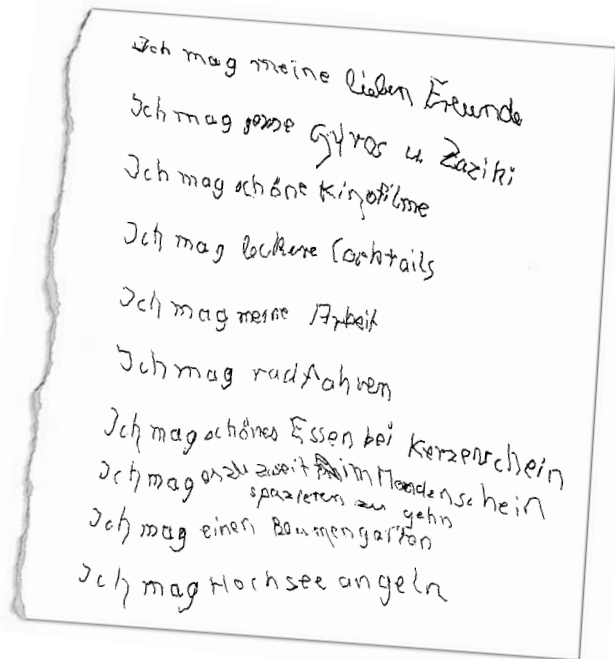 Ich mag meine lieben Freunde
Ich mag gerne Gyros u. Zaziki
Ich mag schöne Kinofilme
Ich mag leckere Cocktails
Ich mag meine Arbeit
Ich mag radfahren
Ich mag schönes Essen bei Kerzenschein
Ich mag es zu zweit im Mondenschein
spazieren zu gehn
Ich mag einen Baumengarten
Ich mag Hochsee angeln